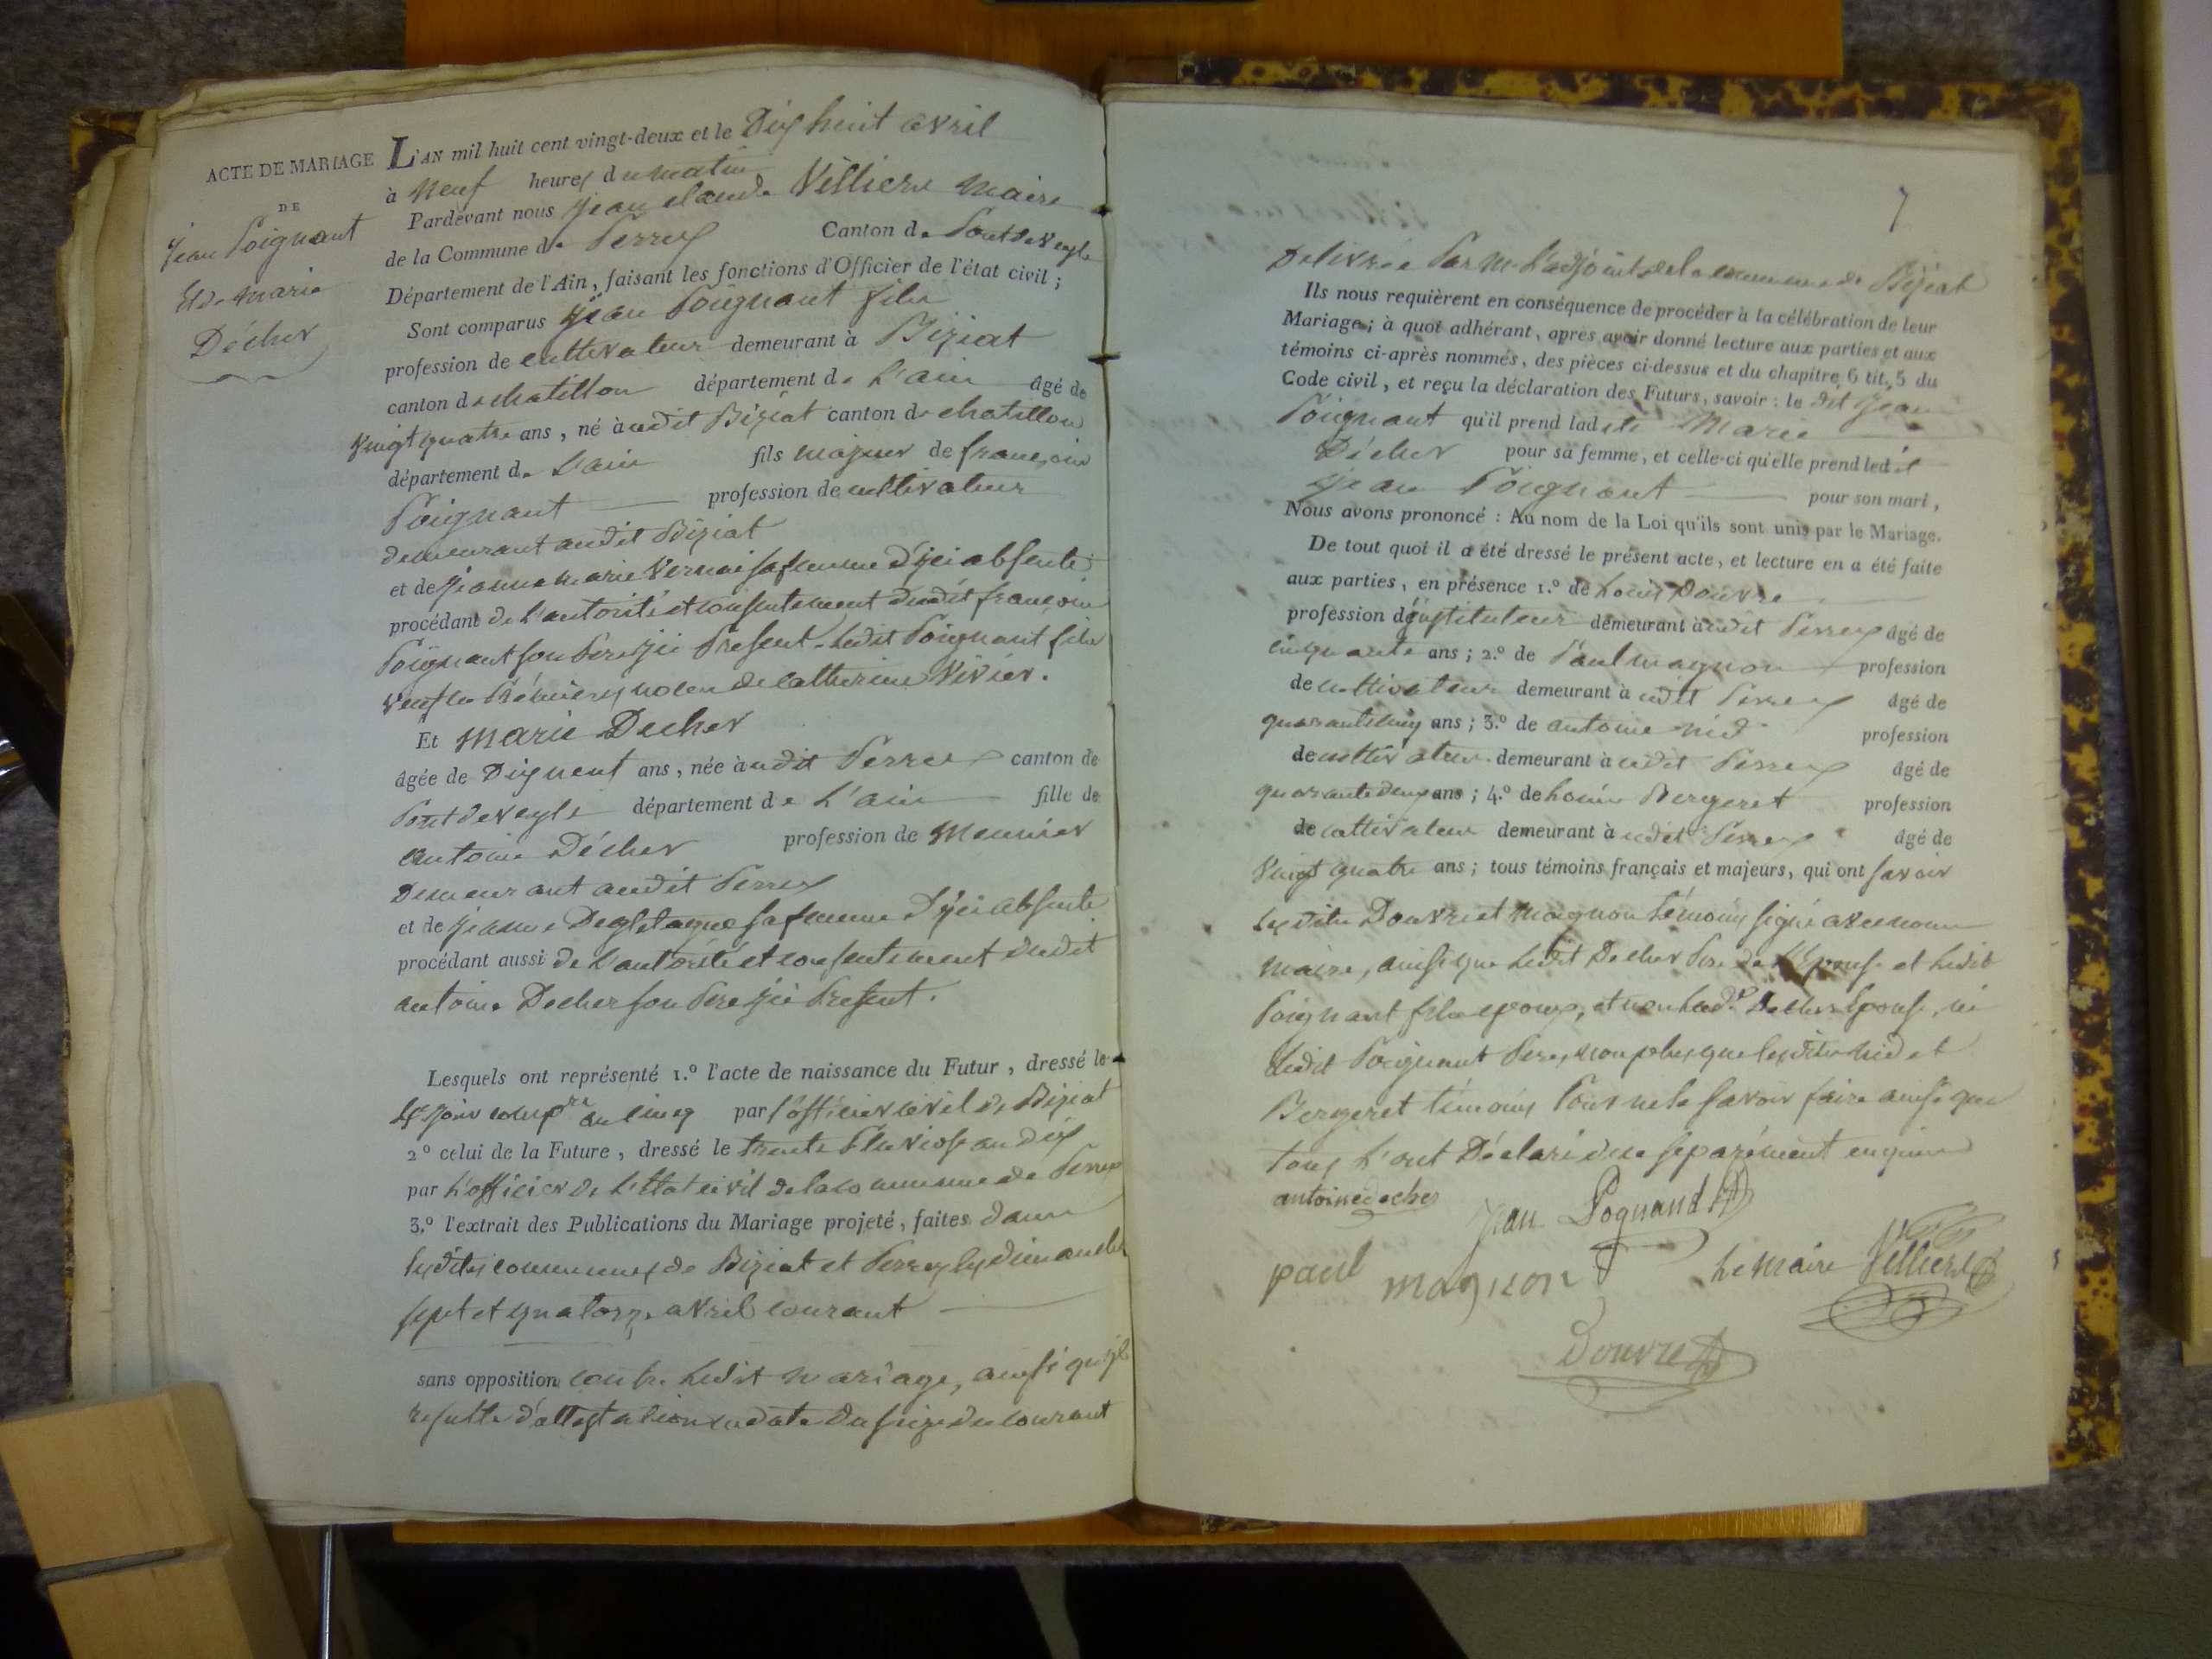 ACTE DE MARIAGE
DE
Jean Poignant
Et de marie
Décher
L'AN mil huit cent vingt-deux et le Dix huit avril
à neuf heures du matin
Pardevant nous jean claude Villiere maire
de la Commune de Perrex Canton de Pont de Veyle
Département de l'Ain, faisant les fonctions d'Officier de l'état civil ;
Sont comparus jean Poignant fils
profession de cultivateur demeurant à Biziat
canton de chatillon département de L'ain âgé de
Vingt quatre ans, né à udit Biziat canton de chatillon
département de L'ain fils majeur de françois
Poignant profession de cultivateur
demeurant audit Biziat
et de jeanne marie Vernai sa femme D'ici absente
procédant de l'autorité et consentement dudit françois
Poignant son Pere ici Present. Ledit Poignant fils
veuf en Prémieres noces de catherine Vivier.
Et marie Decher
âgée de Dix neuf ans, née à udit Perrex canton de
Pont de Veyle département de L'ain fille de
antoine Décher profession de Meunier
Demeurant audit Perrex
et de jeanne sa femme D'ici absente
procédant aussi de L'autorité et consentement dudit
antoine Decher son Pere ici Present.
Lesquels ont représenté 1.º l'acte de naissance du Futur, dressé le
an cinq par l'officier civil de Biziat
2º celui de la Future, dressé le trente Pluviose an dix
par L'officier de L'Etat civil de la commune de Perrex
3.º l'extrait des Publications du Mariage projeté, faites dans
lesdites communes de Biziat et Perrex les dimanches
sept et quatorze avril courant
sans opposition contre Ledit mariage, ainsi qu'il
resulte d'attestation en date du seize du courant
7
Délivrée Par Mr L'adjoint de la commune de Biziat
Ils nous requièrent en conséquence de procéder à la célébration de leur
Mariage ; à quoi adhérant, après avoir donné lecture aux parties et aux
témoins ci-après nommés, des pièces ci-dessus et du chapitre 6 tit. 5 du
Code civil, et reçu la déclaration des Futurs, savoir : le dit jean
Poignant qu'il prend ladite Marie
Décher pour sa femme, et celle-ci qu'elle prend ledit
jean Poignant pour son mari,
Nous avons prononcé : Au nom de la Loi qu'ils sont unis par le Mariage.
De tout quoi il a été dressé le présent acte, et lecture en a été faite
aux parties, en présence 1.º de Louis Douvre
profession d'instituteur demeurant à udit Perrex âgé de
cinquante ans ; 2.º de Paul magnon profession
de cultivateur demeurant à udit Perrex âgé de
quarante cinq ans ; 3.º de antoine nid profession
de cultivateur demeurant à udit Perrex âgé de
quarante deux ans ; 4.º de Louis Bergeret profession
de cultivateur demeurant à udit Perrex âgé de
Vingt quatre ans ; tous témoins français et majeurs, qui ont savoir
lesdits Douvre et Magnon témoins signé avec nous
maire, ainsi que Ledit Decher Pere de L'Epouse et Ledit
Poignant fils epoux, et non Lad.e Decher Epouse, ni
Ledit Poignant Pere, non plus que lesdits nid et
Bergeret témoins Pour ne le savoir faire ainsi que
tous L'ont Déclaré séparément enquis
antoine decher
Jean Pognand
paul magnon
Le Maire Villiere
Douvre